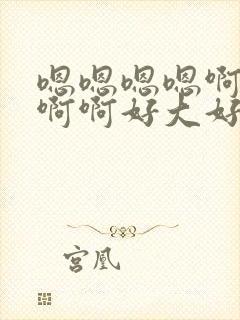 嗯嗯嗯嗯啊
啊啊好大好
宫凰